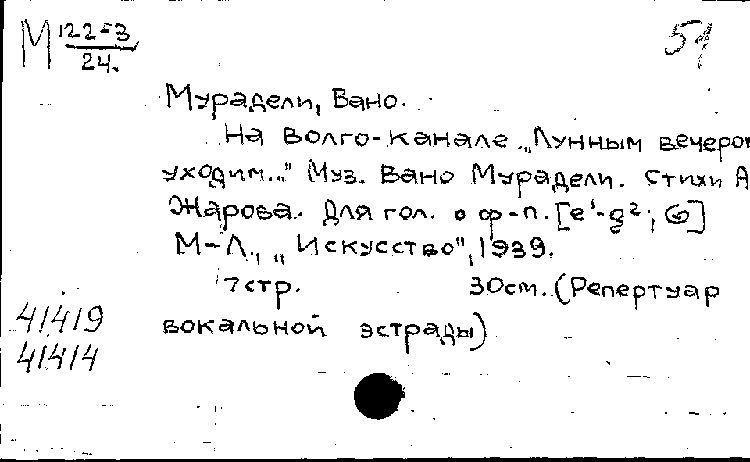 М 122-3
24.
Мурадели, Вано.
На Волго-канале „Лунным вечером
уходим..." Муз. Вано Мурадели. Стихи А
Жарова. Для гол. с ф-п. [e¹-g²;
М-Л., „Искусство", 1939.
7 стр. 30см. (Репертуар
вокальной эстрады)
41419
41414